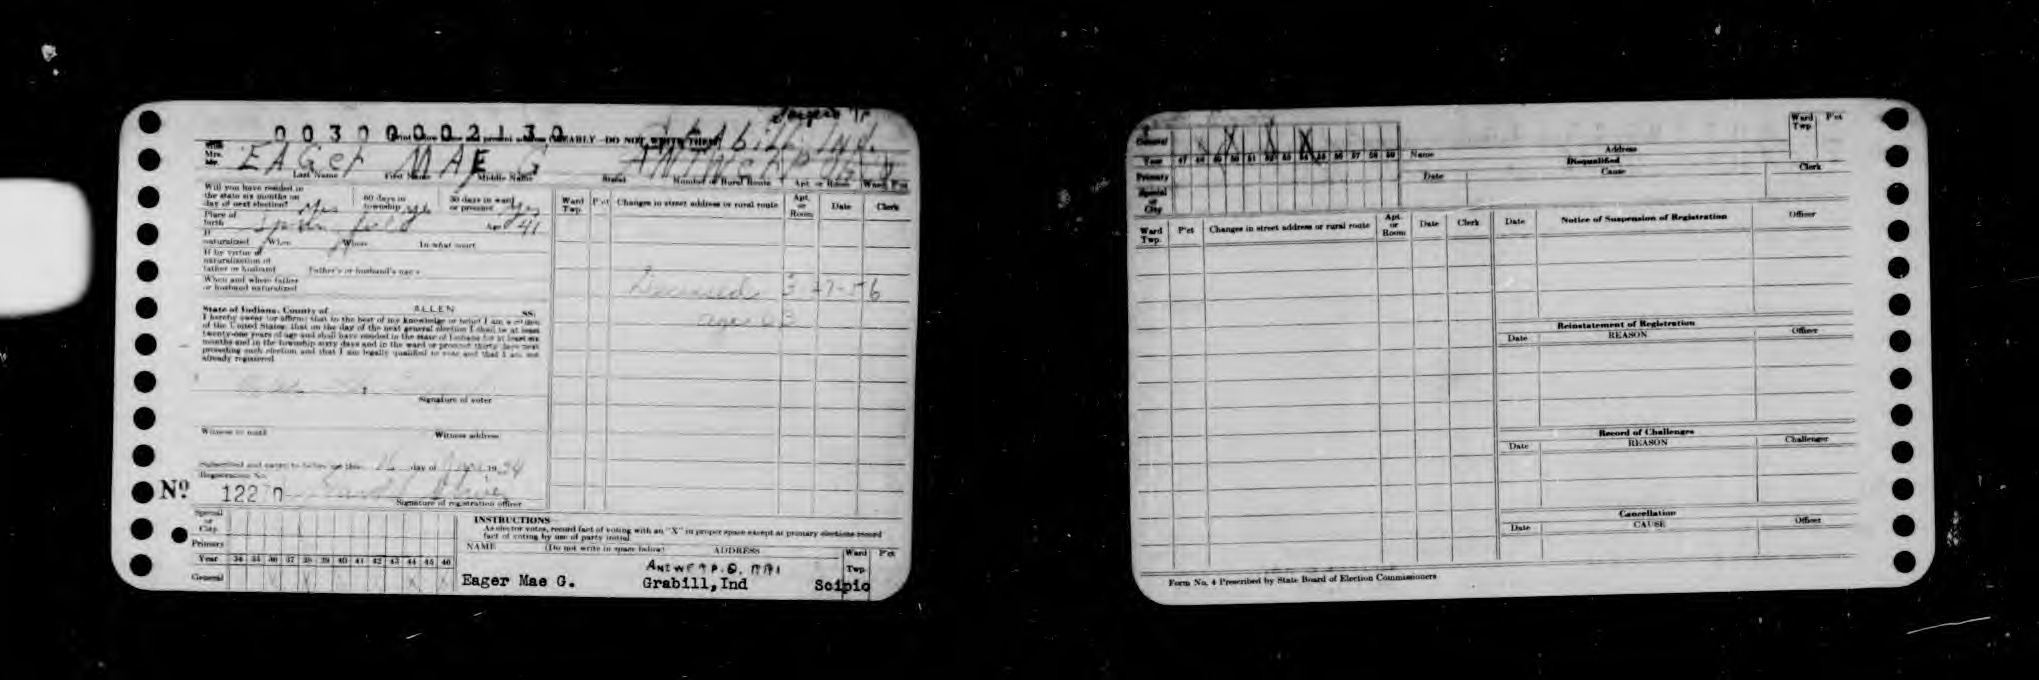 Scipio
003000002130 ABLY—DO NOT WRITE
Grabill Ind.
Miss
Mrs.
Mr.
EAGer MAE G ANTWERP
Last Name First Name Middle Name Street Number or Rural Route Apt. or Room Ward Pct
Will you have resided in
the state six months on
day of next election? Yes
60 days in
township yes
30 days in ward
or precinct Yes
Place of
birth Age 41
If
naturalized When Where In what court
If by virtue of
naturalization of
father or husband Father's or husband's name
When and where father
or husband naturalized
State of Indiana, County of ALLEN SS:
I hereby swear (or affirm) that to the best of my knowledge or belief I am a citizen
of the United States; that on the day of the next general election I shall be at least
twenty-one years of age and shall have resided in the state of Indiana for at least six
months and in the township sixty days and in the ward or precinct thirty days next
preceding such election and that I am legally qualified to vote and that I am not
already registered.
Signature of voter
Witness to mark Witness address
Subscribed and sworn to before me this 16 day of 1934
Registration No.
Nº 12270
Signature of registration officer
Ward
Twp.
P'ct
Changes in street address or rural route
Apt.
or
Room
Date
Clerk
Deceased 3-27-56
age 63
Special
or
City
Primary
Year 34 35 36 37 38 39 40 41 42 43 44 45 46
General X X X X
INSTRUCTIONS
As elector votes, record fact of voting with an "X" in proper space except at primary elections record
fact of voting by use of party initial.
NAME (Do not write in space below) ADDRESS Ward Twp. P'ct
ANTWERP.O. RR1
Eager Mae G. Grabill,Ind Scipio
General X X X X
Year 47 48 49 50 51 52 53 54 55 56 57 58 59
Primary
Special
or
City
Name Address
Ward
Twp.
P'ct
Disqualified
Date Cause Clerk
Ward
Twp.
P'ct
Changes in street address or rural route
Apt.
or
Room
Date
Clerk
Date Notice of Suspension of Registration Officer
Reinstatement of Registration
Date REASON Officer
Record of Challenges
Date REASON Challenger
Cancellation
Date CAUSE Officer
Form No. 4 Prescribed by State Board of Election Commissioners